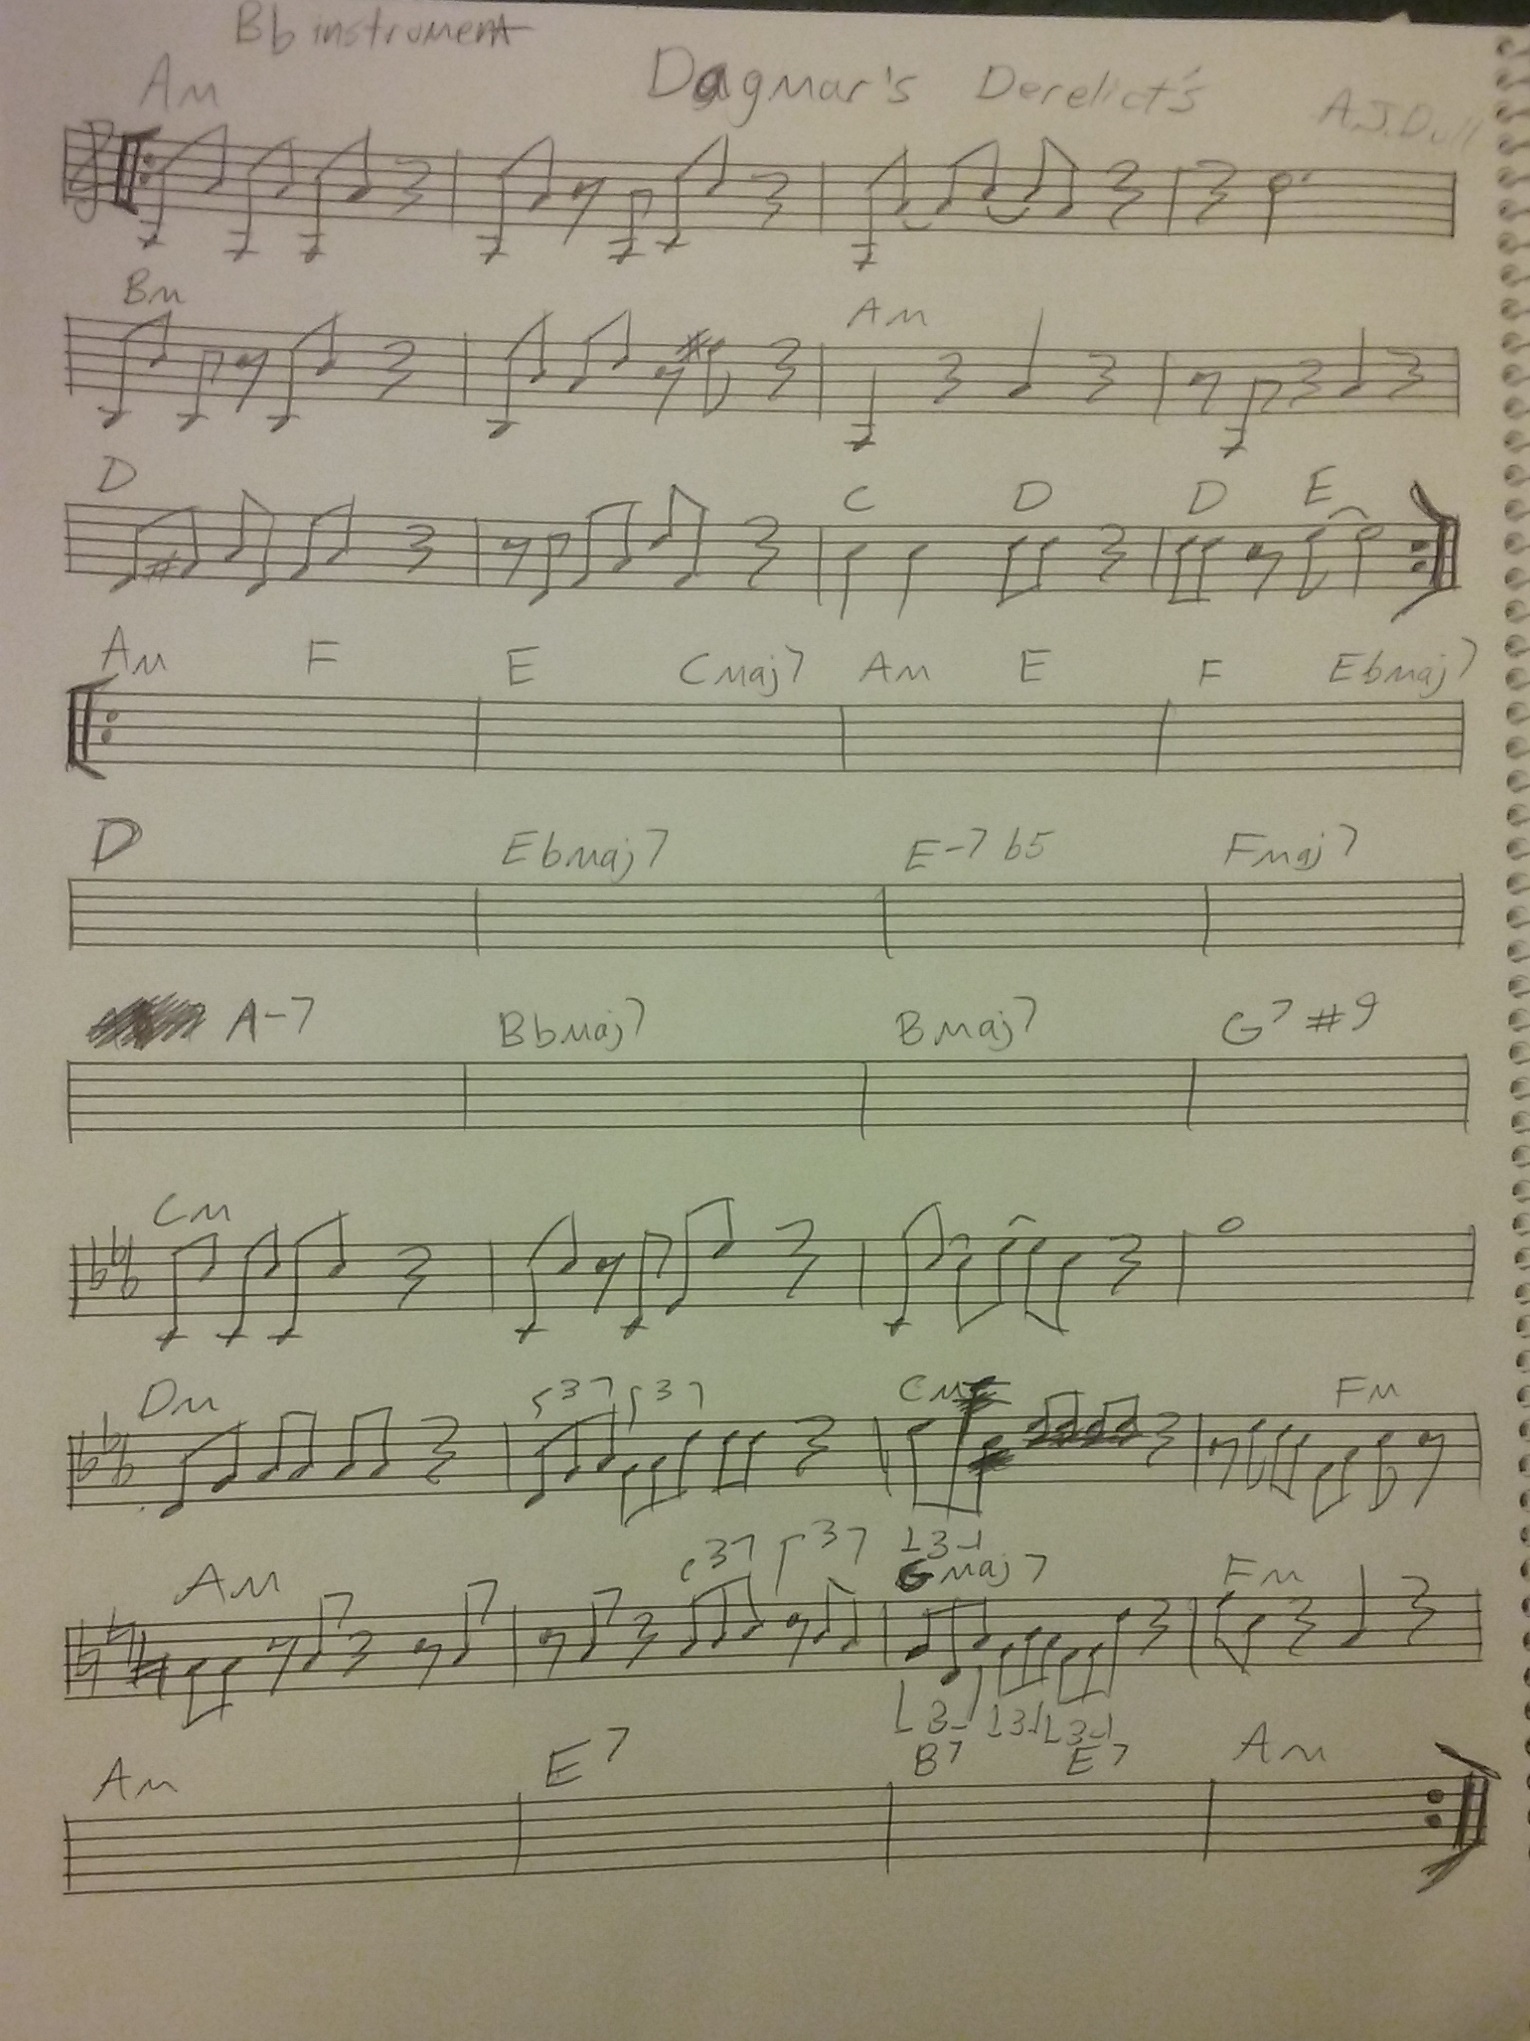 Bb instrument
Am Dagmar's Derelict's A.J.Dull
Bm Am
D C D D E
Am F E Cmaj7 Am E F Ebmaj7
D Ebmaj7 E-7 b5 Fmaj7
A-7 Bbmaj7 Bmaj7 G7 #9
Cm
Dm 3 3 Cm Fm
3
Am 3 3 Gmaj7 Fm
3 3 3
Am E7 B7 E7 Am